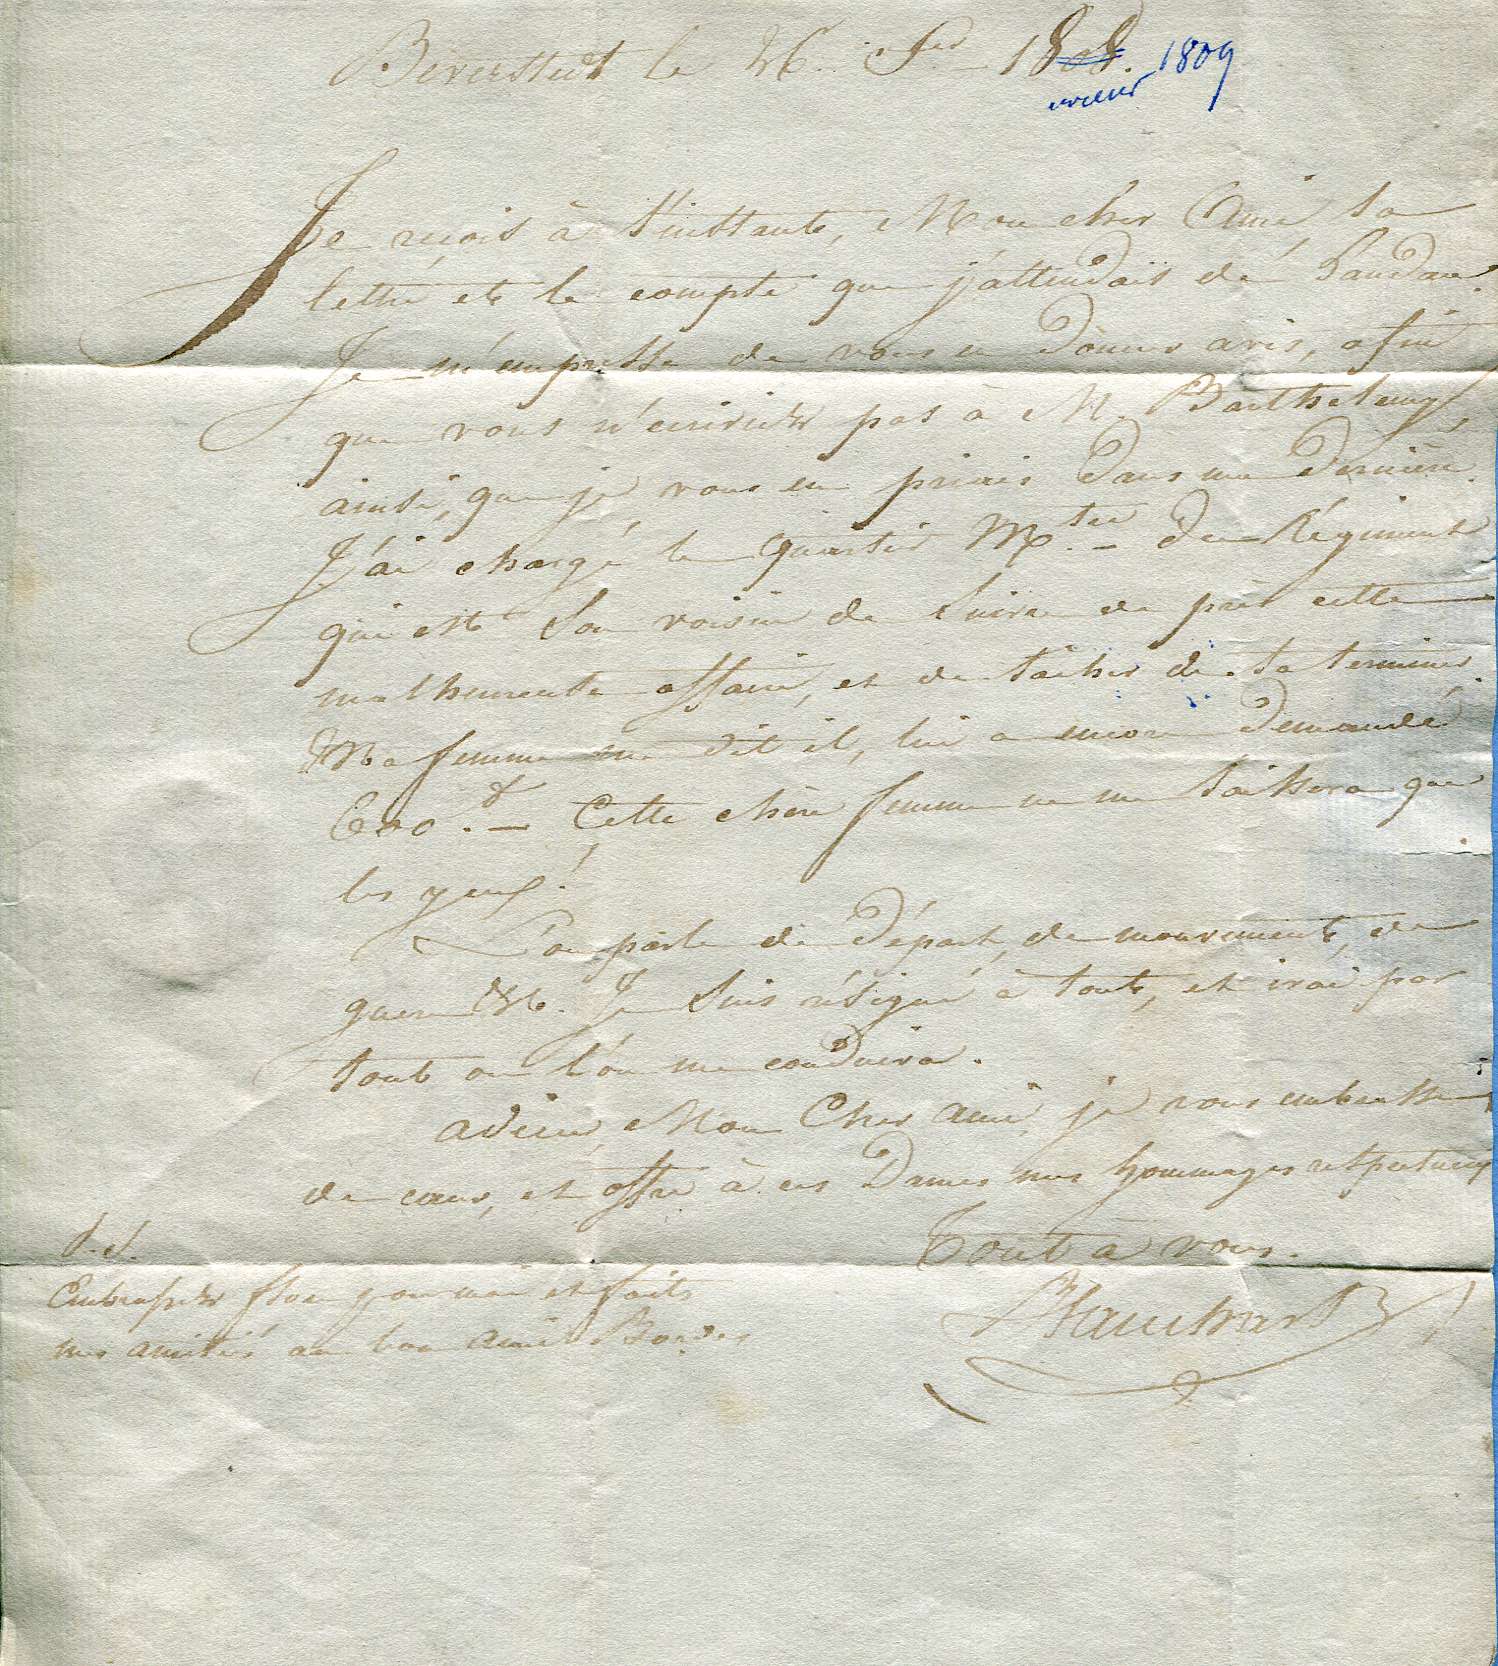 Beverstedt le 26. fer 1808. 1809
erreur
Je reçois à l'instant, Mon cher Ami, la
lettre et le compte que j'attendais de
Je m'empresse de vous en donner avis, afin
que vous n'écriviez pas à M. Barthelemy,
ainsi, que je vous en priais dans ma dernière.
J'ai chargé le quartier Mtre du Régiment
qui est son voisin de suivre de près cette
malheureuse affaire, et de tacher de la terminer.
Ma femme me dit il, lui a encore demandé
600.# — Cette chère femme ne me laissera que
les yeux!
L'on parle de départ, de mouvement, de
guerre &c. Je suis résigné à tout, et irai par
tout ou l'on me conduira.
adieu, Mon Cher ami, je vous embrasse
de cœur, et offre à ces Dames mes hommages respectueux
Tout à vous.
P.S.
Embrassez pour moi et faites
mes amitiés au bon ami Bordes
Blanchard